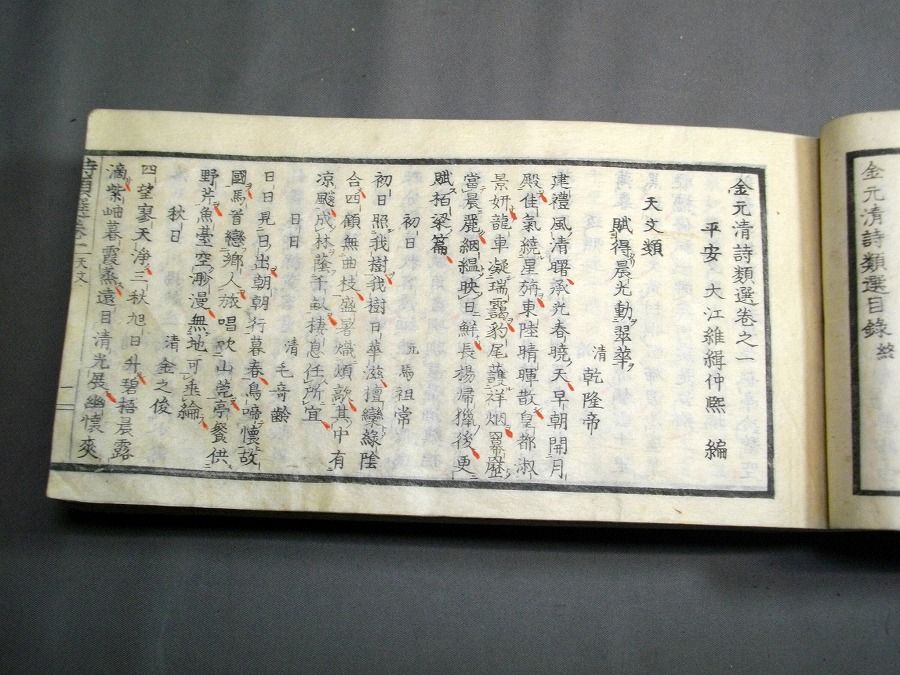 金元清詩類選目錄終
金元清詩類選卷之一
平安 大江維緝仲熙 編
天文類
賦得晨光動翠華
清 乾隆帝
建禮風清曙承光春曉天早朝開月
殿佳氣繞星旃東陸晴暉散皇都淑
景妍龍車凝瑞靄豹尾護祥烟
當晨麗絪縕映日鮮長楊歸獵後更
賦柏梁篇
初日 元 馬祖常
初日照我樹我樹日華滋檀欒綠陰
合四顧無曲枝盛暑熾煩歊其中有
凉颸成林蔭千畝棲息任所宜
日日 清 毛奇齡
日日見日出朝朝行暮春鳥啼懷故
國馬首戀鄉人旅唱吹山亭餐供
野芹魚臺空漫無地可垂綸
秋日 清 金之俊
四望寥天淨三秋旭日升碧梧晨露
滴紫岫暮霞蒸遠目清光展幽懷爽
天文 一